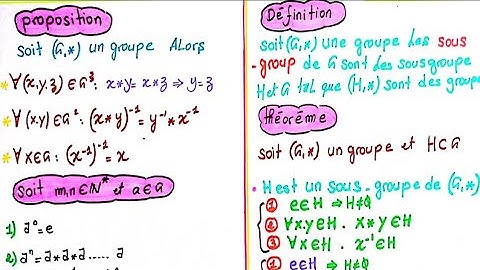 proposition
Soit (G,*) un groupe Alors
* ∀(x,y,z) ∈ G³: x*y = x*z ⇒ y=z
* ∀(x,y) ∈ G²: (x*y)⁻¹ = y⁻¹*x⁻¹
* ∀x∈G: (x⁻¹)⁻¹ = x
Soit m,n∈IN* et a∈G
1) a⁰=e
2) aⁿ = a*a*a..... a
Définition
Soit (G,*) une groupe les sous
-group de G sont les sousgroupe
H et G tal que (H,*) sont des groupe
théorème
Soit (G,*) un groupe et H⊂G
• H est un sous-groupe de (G,*)
① e∈H ⇒ H≠∅
② ∀x.y∈H . x*y∈H
③ ∀x∈H . x⁻¹∈H
① e∈H ⇒ H≠∅